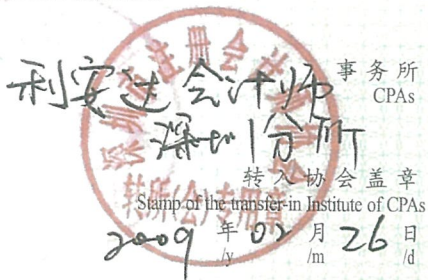 利安达会计师 事务所
CPAs
深圳分所
转入协会盖章
Stamp of the transfer-in Institute of CPAs
2009 年 02 月 26 日
/y /m /d
深圳市注册会计师协会
转所(会)专用章